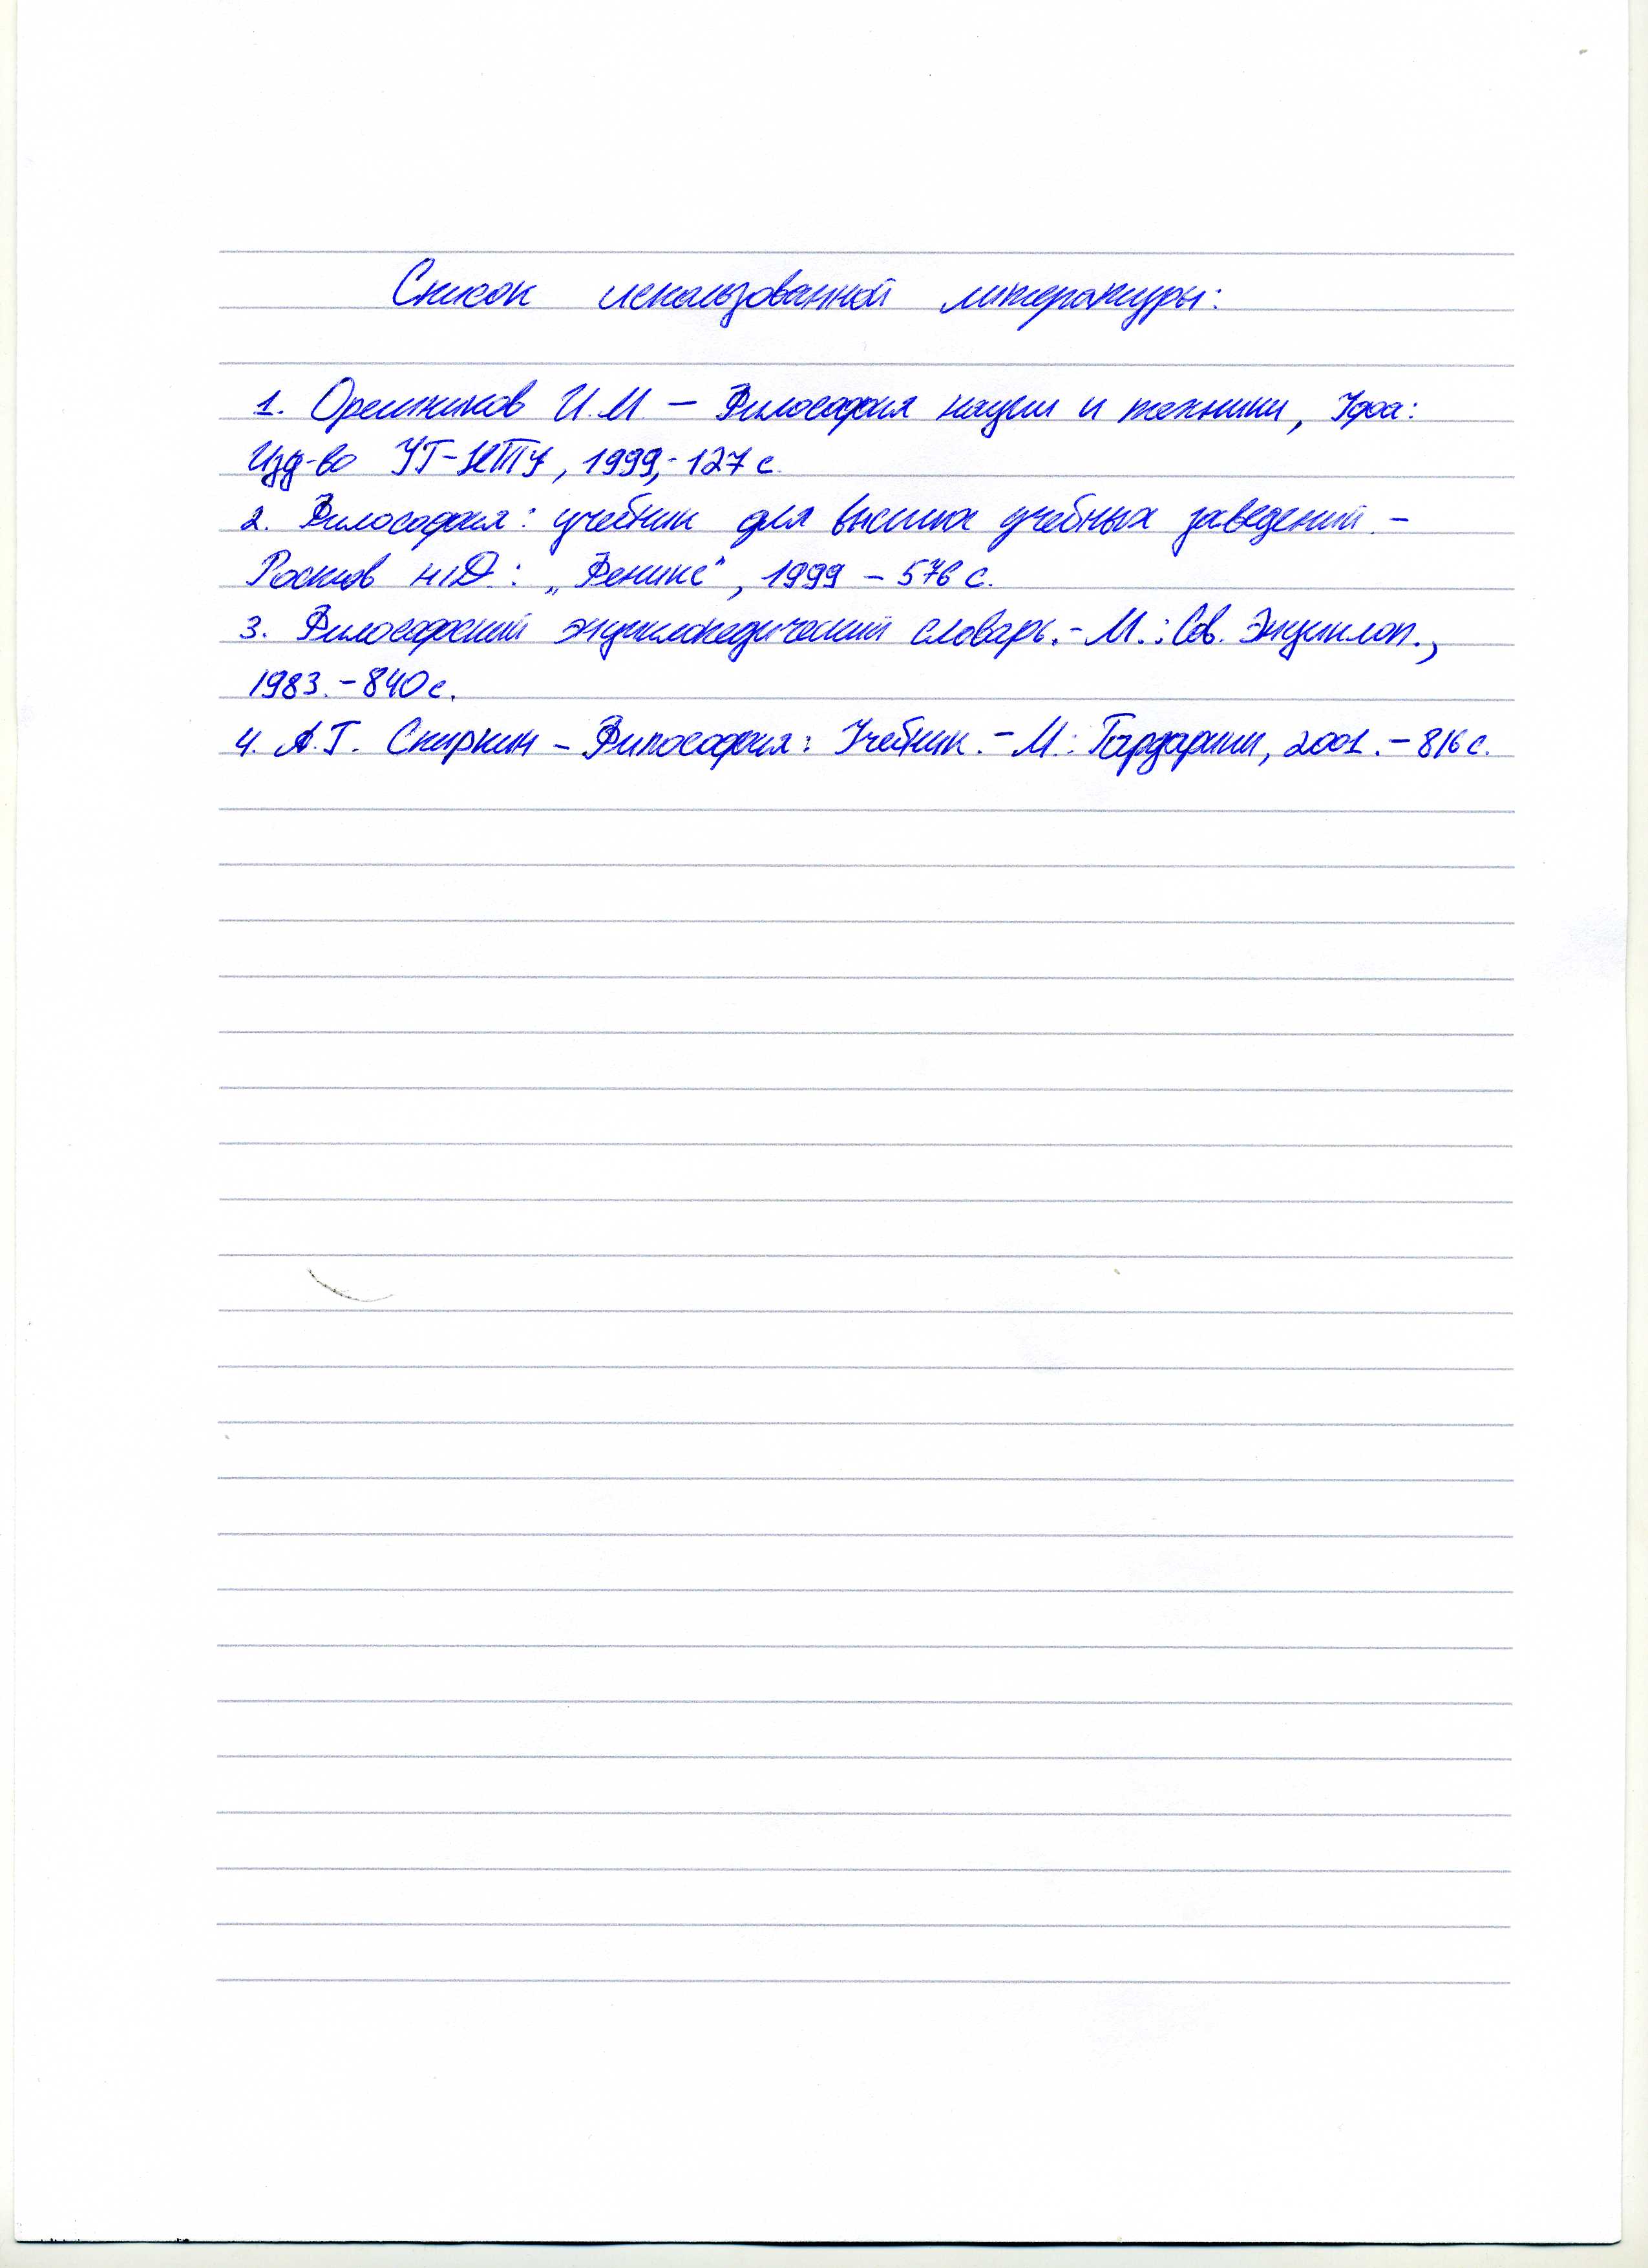 Список использованной литературы:
1. Орешников И.М. – Философия науки и техники, Уфа:
Изд-во УГ-НТУ, 1999,- 127 с.
2. Философия: учебник для высших учебных заведений. –
Ростов н/Д.: „Феникс", 1999 – 576 с.
3. Философский энциклопедический словарь. – М.: Сов. Энциклоп.,
1983. – 840 с.
4. А.Г. Спиркин – Философия: Учебник. – М.: Гардарики, 2001. – 816 с.